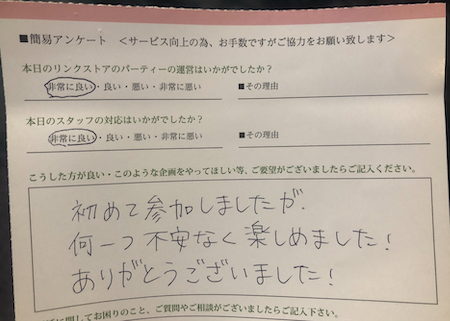 ■簡易アンケート ＜サービス向上の為、お手数ですがご協力をお願い致します＞
本日のリンクストアのパーティーの運営はいかがでしたか？
非常に良い・良い・悪い・非常に悪い ■その理由
本日のスタッフの対応はいかがでしたか？
非常に良い・良い・悪い・非常に悪い ■その理由
こうした方が良い・このような企画をやってほしい等、ご要望がございましたらご記入ください。
初めて参加しましたが、
何一つ不安なく楽しめました！
ありがとうございました！
に関してお困りのこと、ご質問やご相談がございましたらご記入下さい。